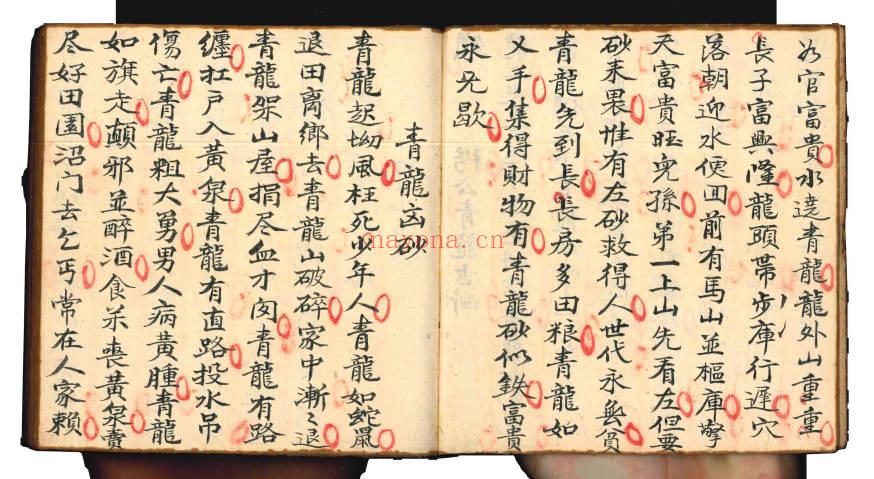 为官富貴水遶青龍龍外山重重
長子富興隆龍頭帶步庫行遲穴
落朝迎水便囬前有馬山並樞庫擎
天富貴旺兒孫第一上山先看左但要
砂来畏惟有左砂救得人世代永無貧
青龍先到長長房多田粮青龍如
义手集得財物有青龍砂似鉄富貴
永无歇
青龍凶砂
青龍起坳風枉死少年人青龍如蛇鼠
退田离鄉去青龍山破碎家中漸〻退
青龍架山屋捐尽血才内青龍有路
纏扛戸入黄泉青龍有直路投水吊
傷亡青龍粗大勇男人病黄腫青龍
如旗走顛邪並醉酒食茶喪黄泉賣
尽好田園沿门去乞丐常在人家賴
mayona.cn